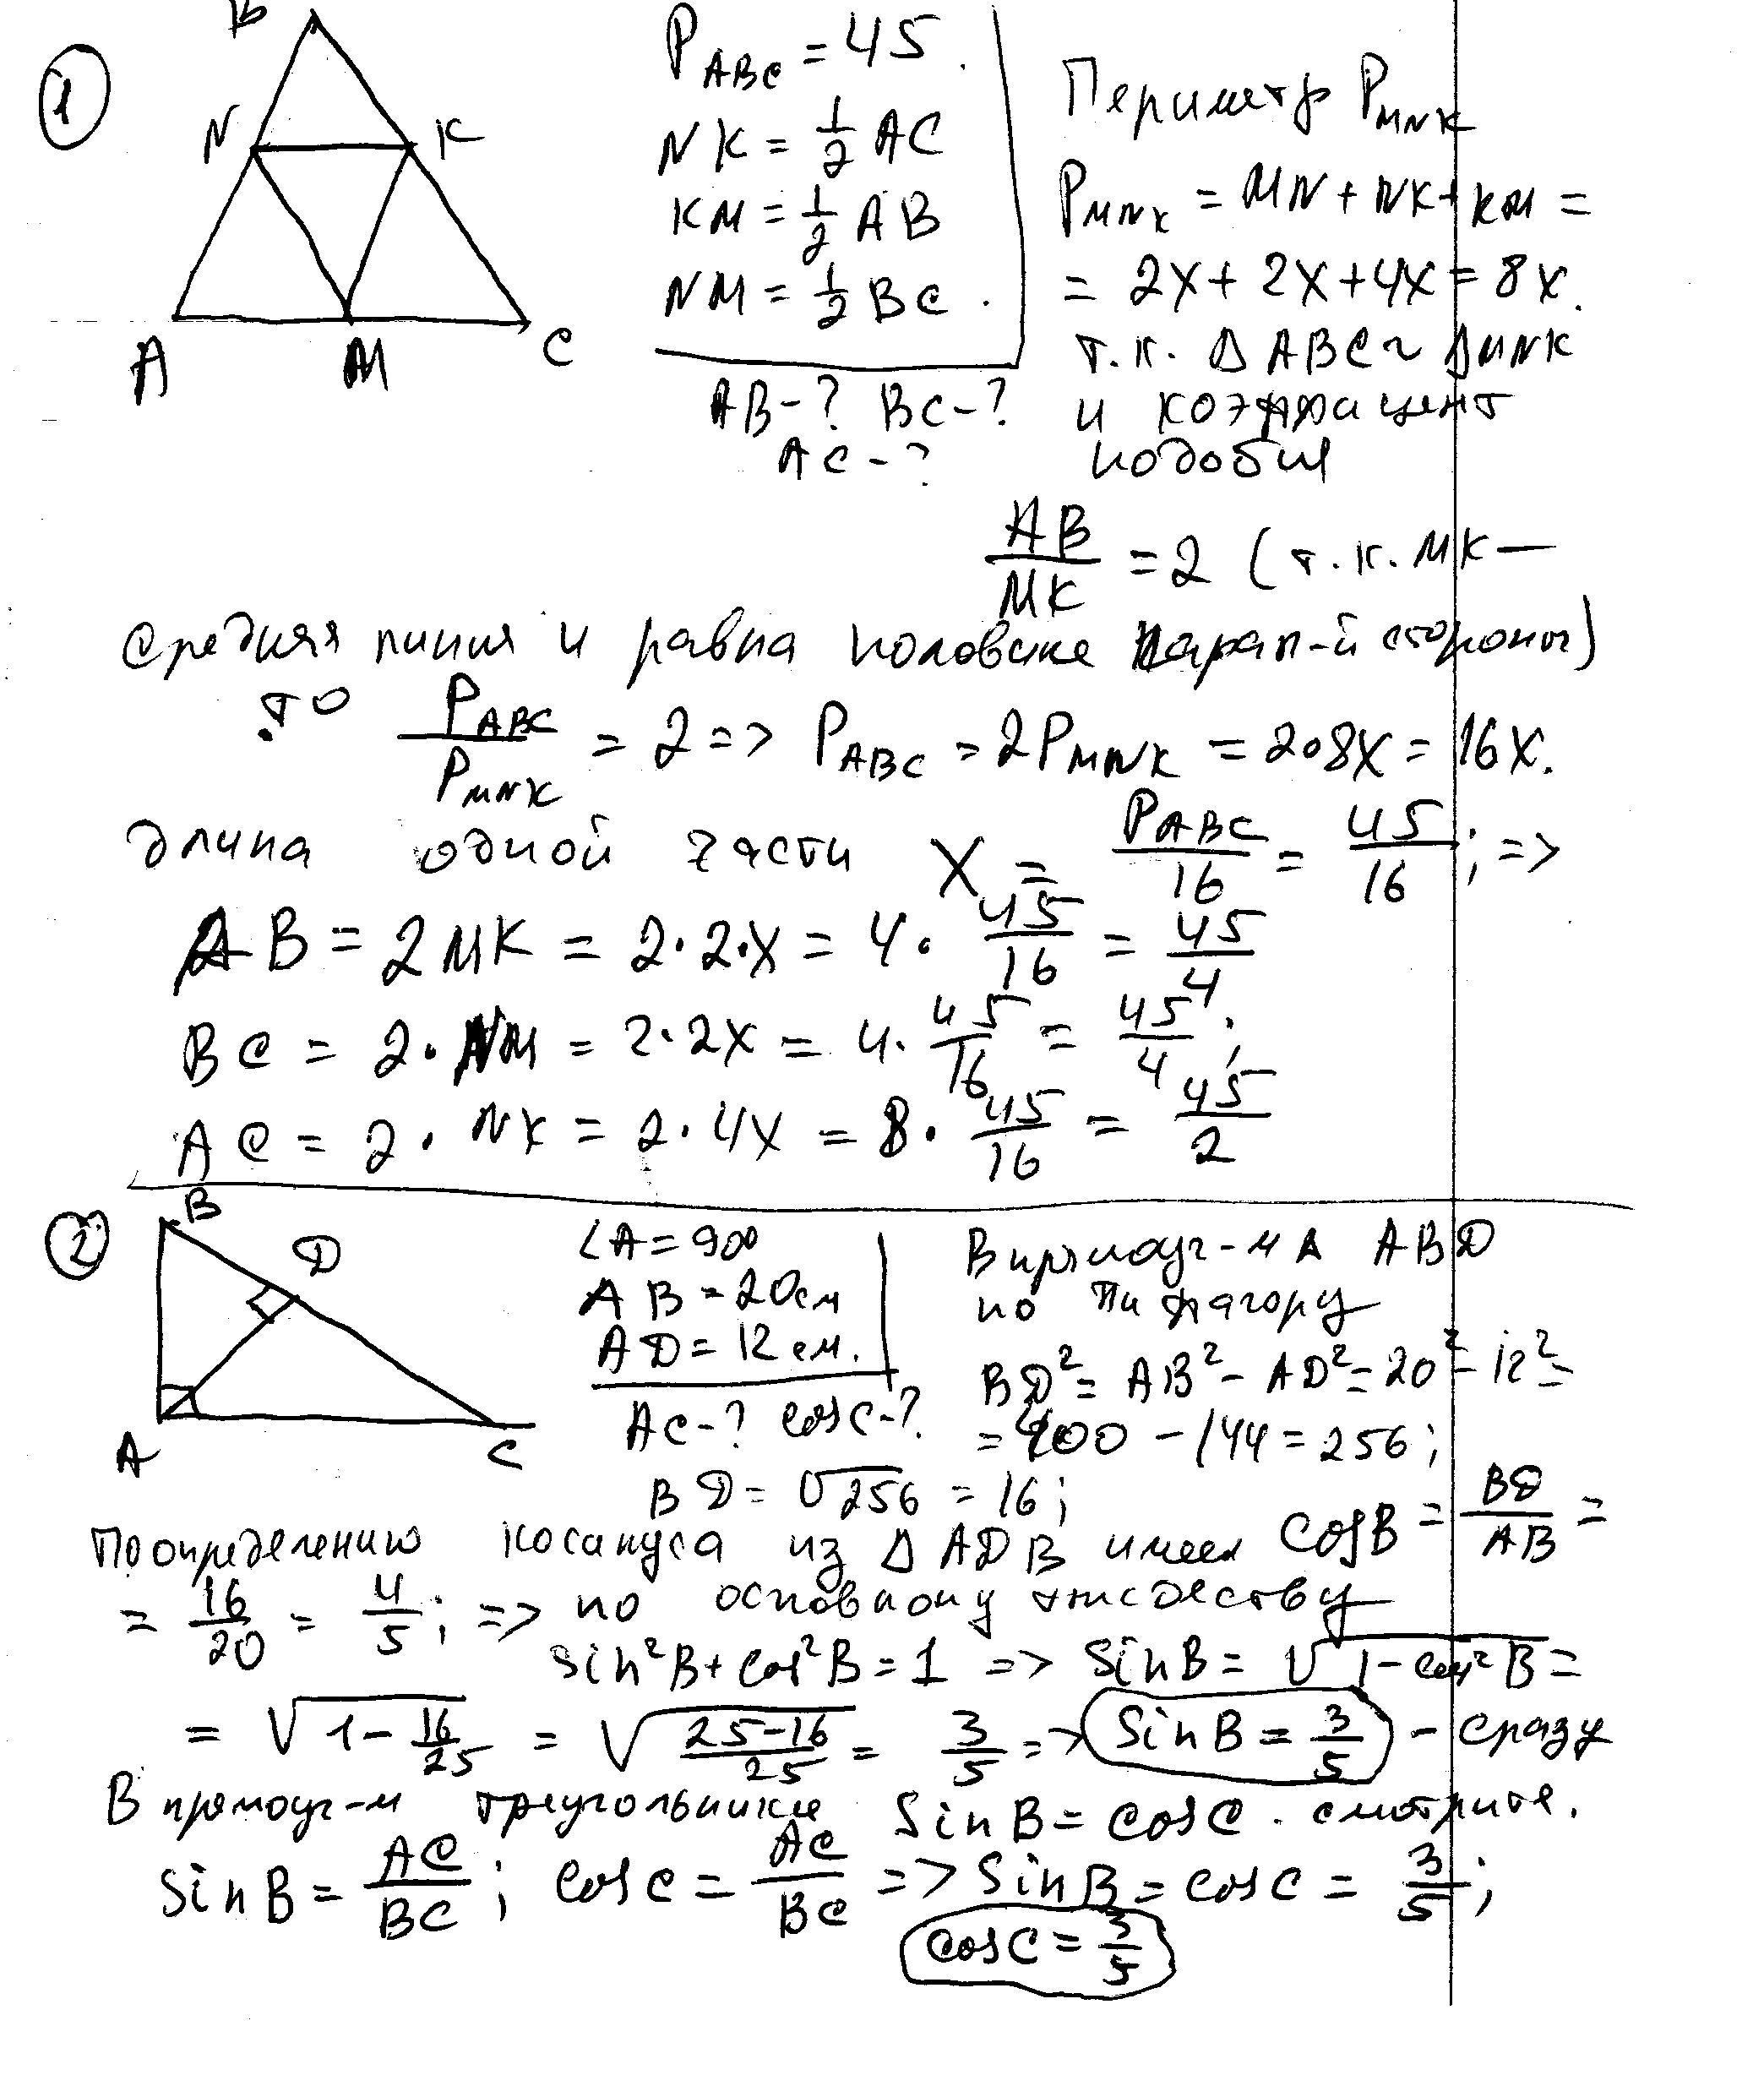 1
B
N K
A M C
P_ABC = 45.
NK = 1/2 AC
KM = 1/2 AB
NM = 1/2 BC.
AB-? BC-?
AC-?
Периметр P_MNK
P_MNK = MN + NK + KM =
= 2X + 2X + 4X = 8X.
т.к. Δ ABC ~ Δ MNK
и коэффициент
подобия
AB/MK = 2 (т.к. MK —
средняя линия и равна половине парал-й стороны)
то P_ABC/P_MNK = 2 => P_ABC = 2P_MNK = 2·8X = 16X.
длина одной части X = P_ABC/16 = 45/16; =>
AB = 2MK = 2·2·X = 4·45/16 = 45/4
BC = 2·NM = 2·2X = 4·45/16 = 45/4;
AC = 2·NK = 2·4X = 8·45/16 = 45/2
2
B
D
A C
∠A = 90°
AB = 20см
AD = 12см.
AC-? cosC-?
В прямоуг-м Δ ABD
по Пифагору
BD² = AB² - AD² = 20² - 12² =
= 400 - 144 = 256;
BD = √256 = 16;
По определению косинуса из Δ ADB имеем cosB = BD/AB =
= 16/20 = 4/5; => по основному тождеству
sin²B + cos²B = 1 => sinB = √1-cos²B =
= √1-16/25 = √25-16/25 = 3/5 => SinB = 3/5 - сразу
В прямоуг-м треугольнике SinB = cosC. смотрите.
SinB = AC/BC; cosC = AC/BC => SinB = cosC = 3/5;
cosC = 3/5